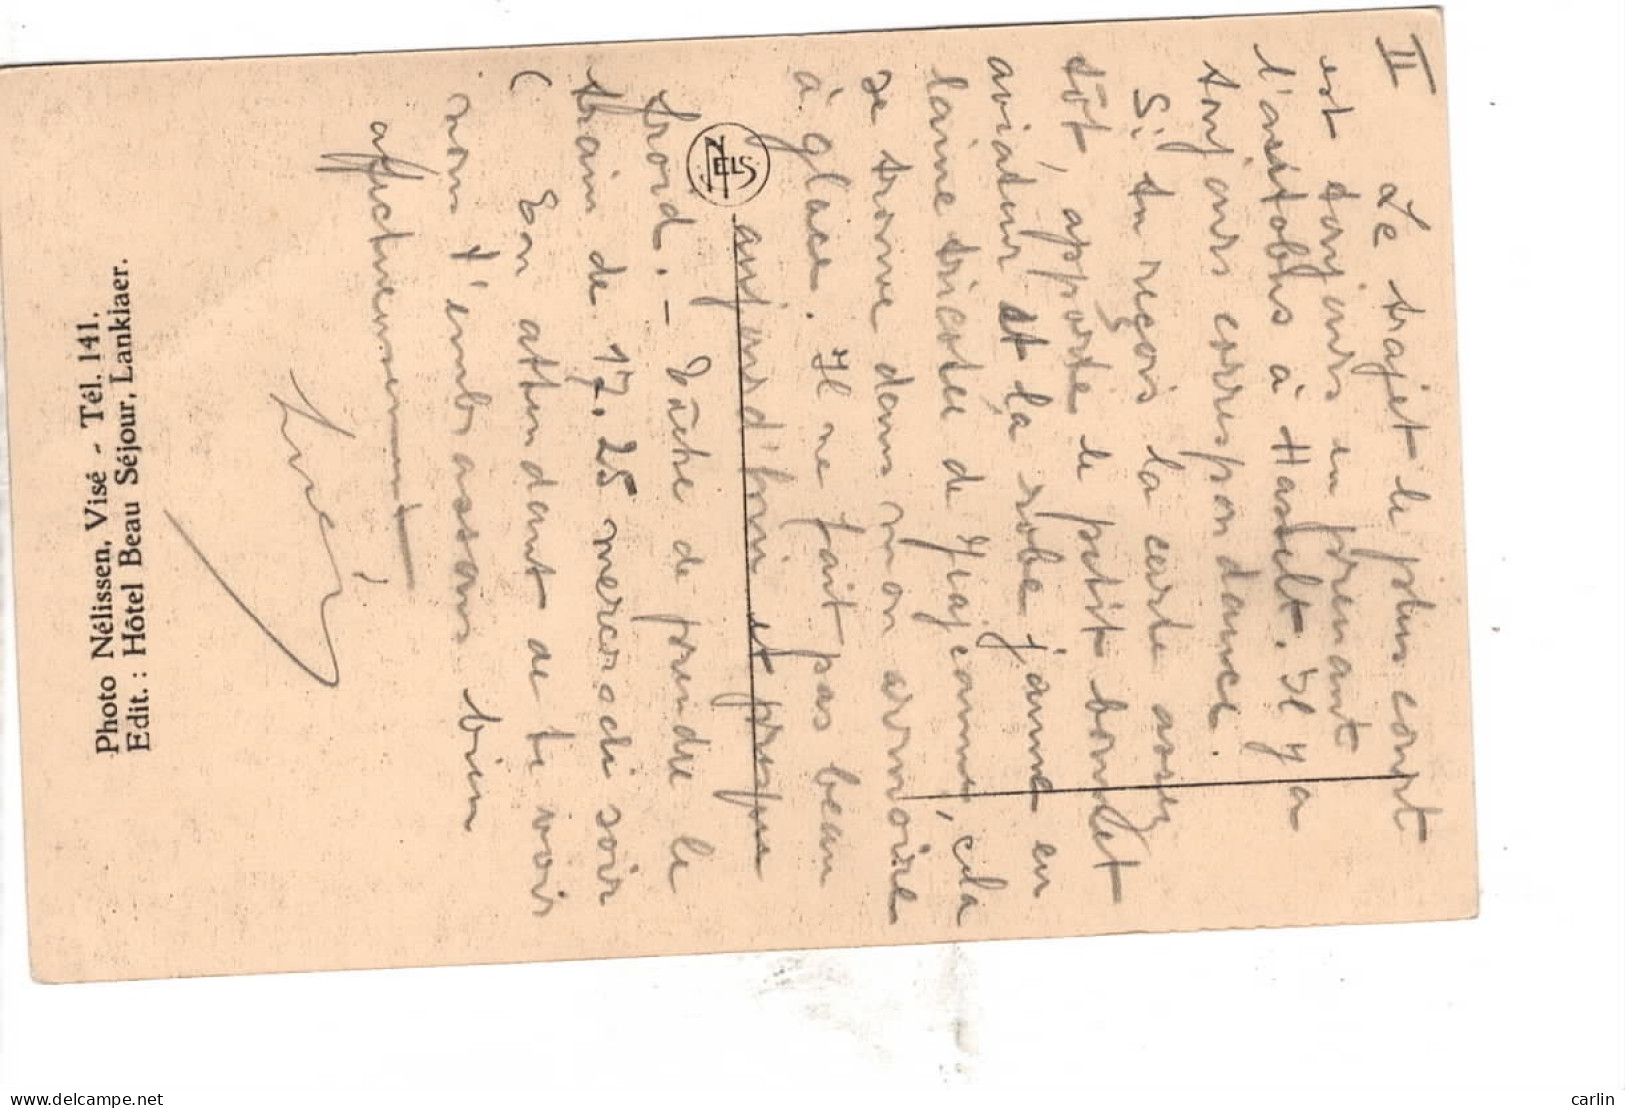 II
Le trajet le plus court
est toujours en prenant
l'autobus à Hasselt. Il y a
toujours correspondance.
Si tu reçois la carte assez
tôt, apporte le petit bonnet
aviateur et la robe jaune en
laine tricotée de cela
se trouve dans mon armoire
à glace. Il ne fait pas beau
aujourd'hui et presque
froid. - Tâche de prendre le
train de 17.25 mercredi soir
(
En attendant de te voir
nous t'embrassons bien
affectueusement
NELS
Photo Nélissen, Visé - Tél. 141.
Edit. : Hôtel Beau Séjour, Lankiaer.
delcampe.net
carlin